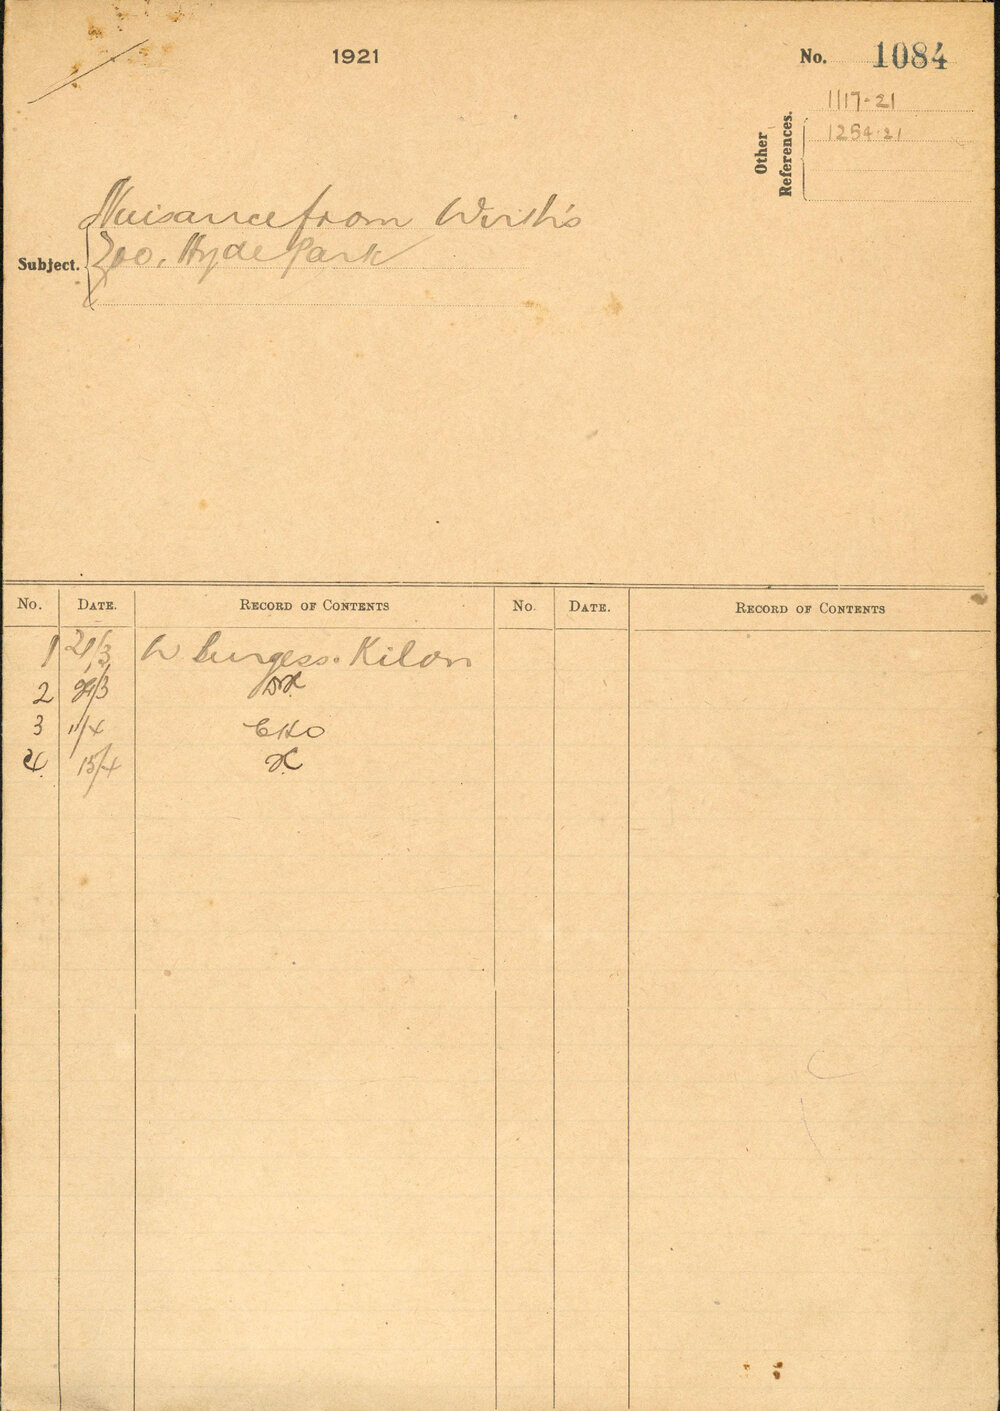 1921
No. 1084
Other References.
1117-21
1254-21
Subject.
Nuisance from Wirth's
Zoo, Hyde Park
No. DATE. RECORD OF CONTENTS No. DATE. RECORD OF CONTENTS
1 21/3 W Burgess. Kilon
2 /3
3 11/4 CHO
4 15/4